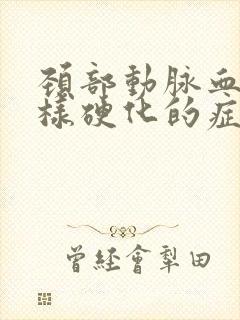 頚部動脈血
樣硬化的症
曾經會犁田